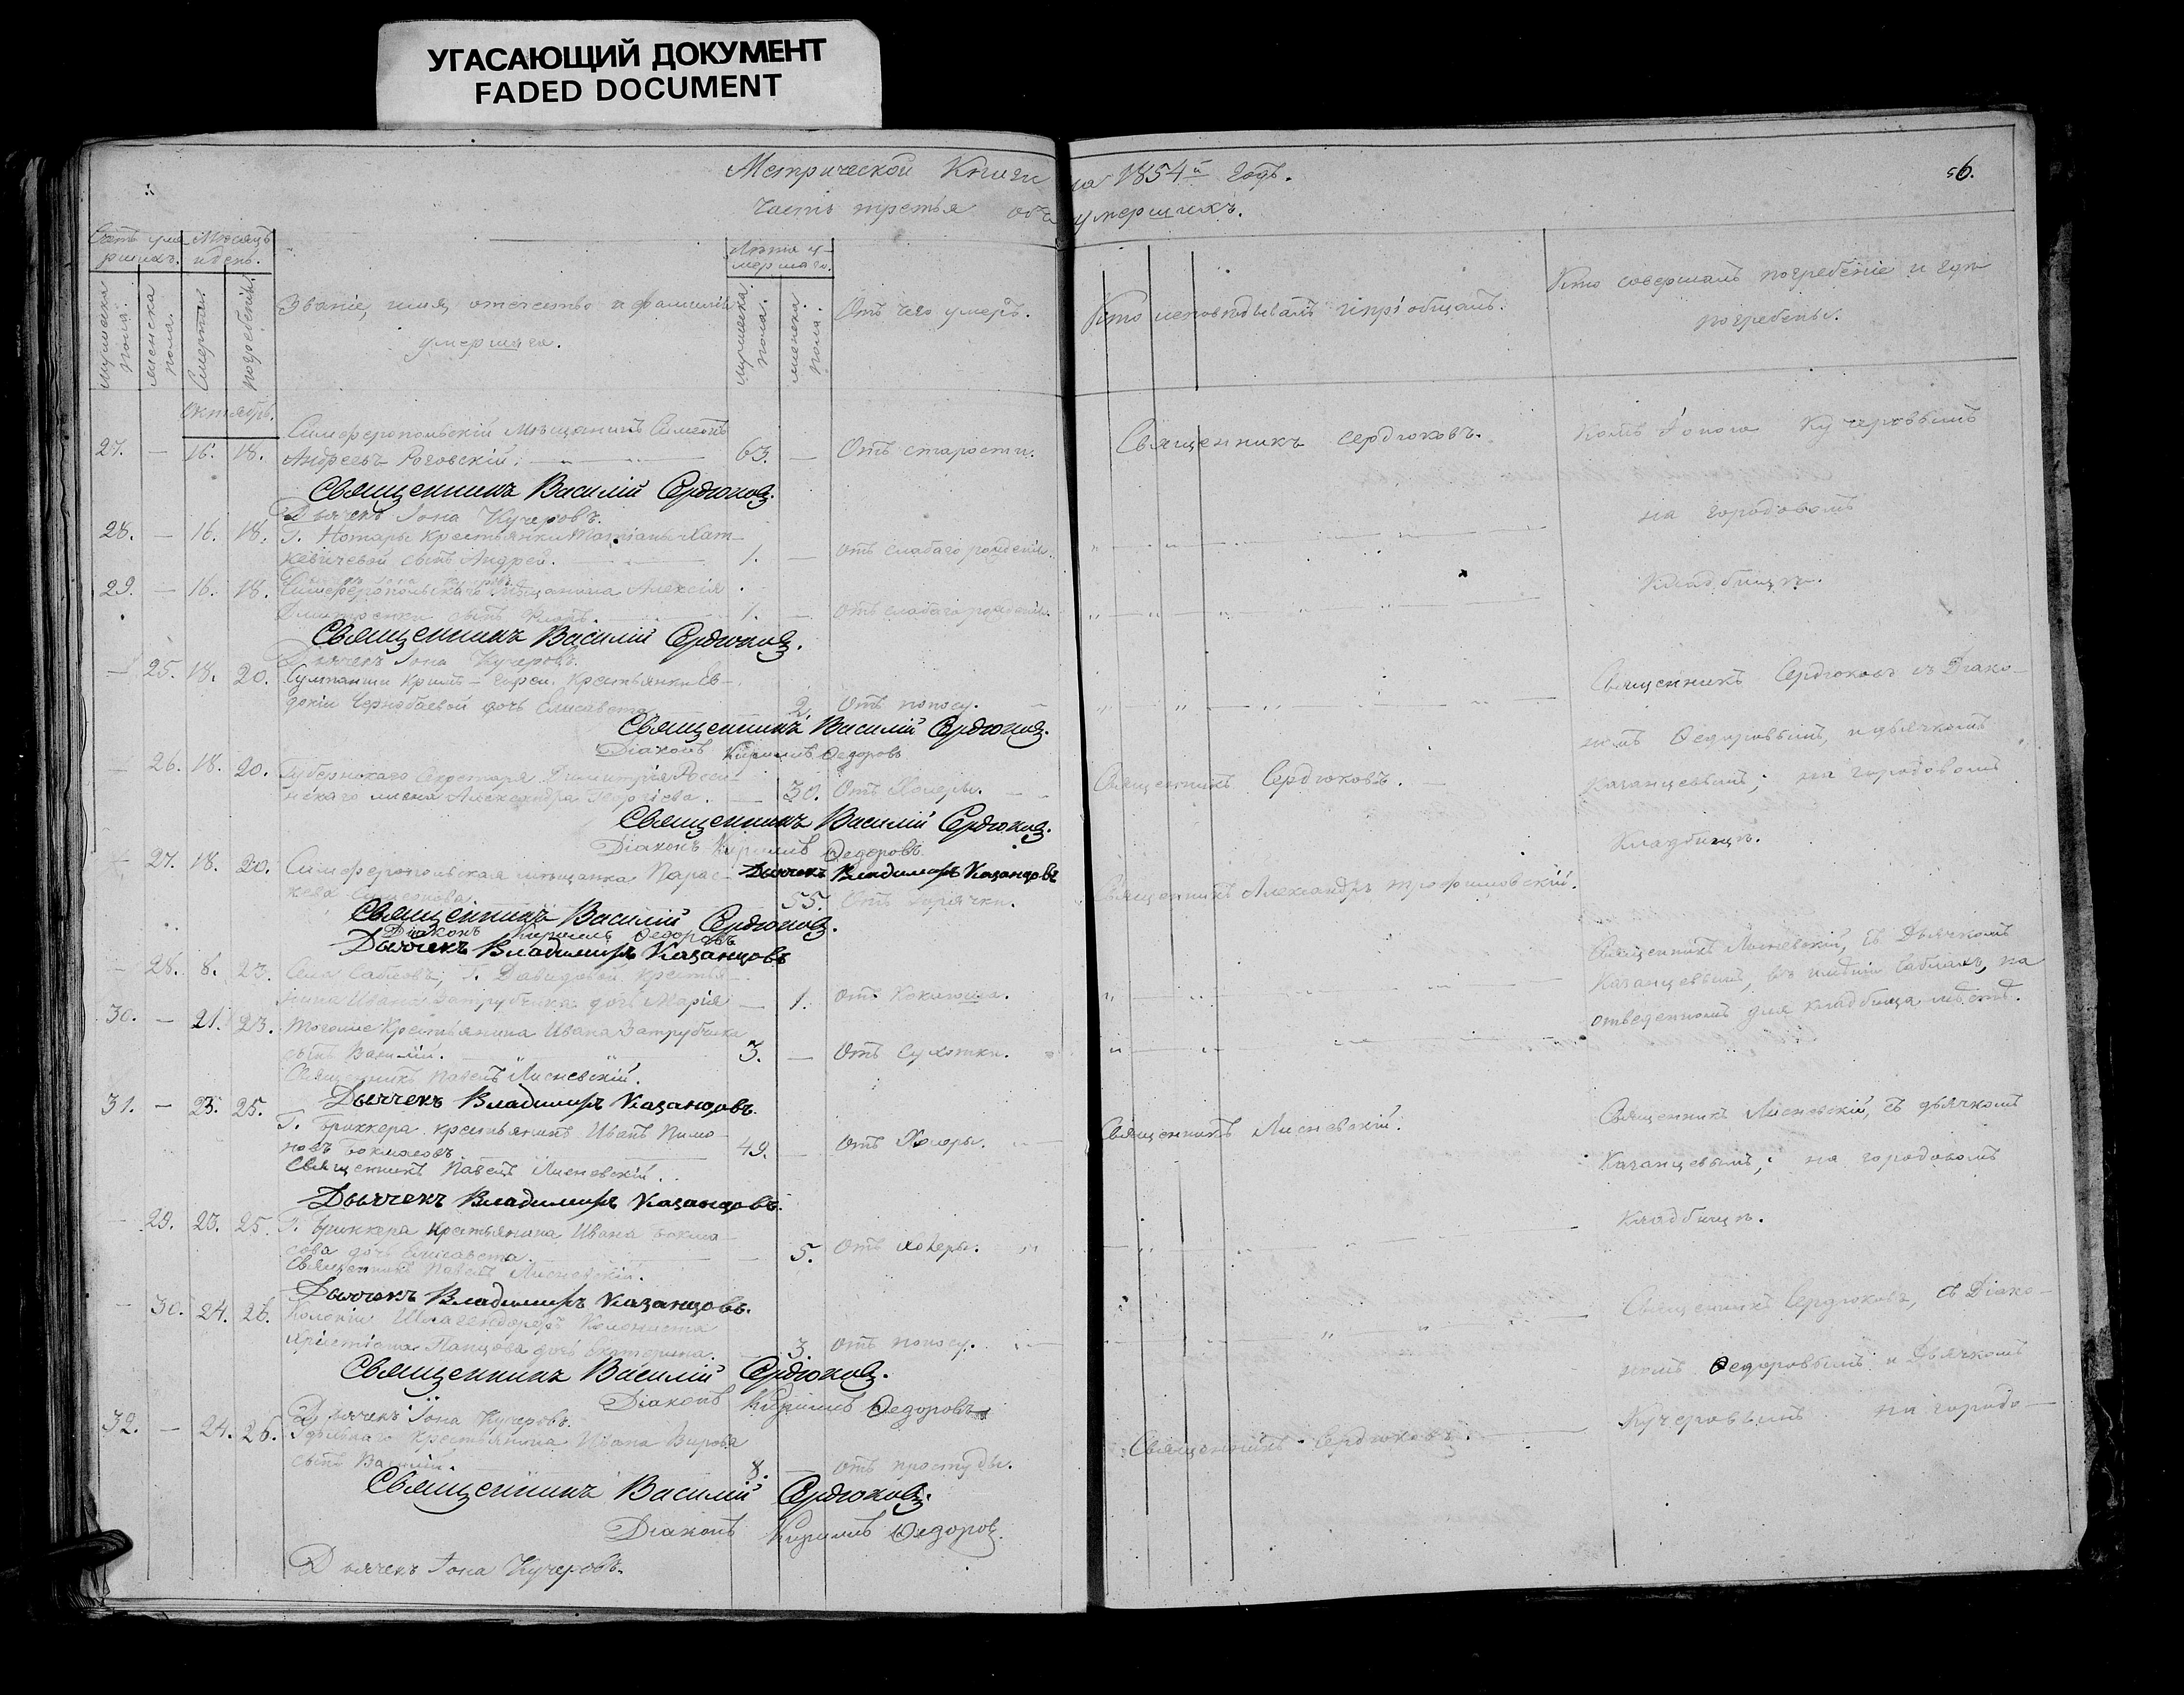 УГАСАЮЩИЙ ДОКУМЕНТ
FADED DOCUMENT
Метрической Книги на 1854й годъ. 56.
Часть третья объ умершихъ.
Счетъ умершихъ. Мѣсяцъ и день.
Лѣта умершаго.
мужеска пола. женска пола. Смерти. погребенія.
Званіе, имя, отечество и фамилія умершаго.
мужеска пола. женска пола.
Отъ чего умеръ.
Кто исповѣдывалъ и пріобщалъ.
Кто совершалъ погребеніе и гдѣ погребены.
Октябрь.
Симферопольскій мѣщанинъ Симеонъ
27. — 16. 18. Андреевъ Роговскій. 63. — Отъ старости. Священникъ Сердюковъ. Кучеровымъ
Священникъ Василій Сердюковъ.
Дьячекъ Іона Кучеровъ.
на городовомъ
28. — 16. 18. Г. Нотары крестьянки
сынъ Андрей. 1. — отъ слабаго рожденія.
кладбищѣ.
29. — 16. 18. Симферопольскаго мѣщанина Алексія
сынъ 1. — отъ слабаго рожденія.
Священникъ Василій Сердюковъ.
Дьячекъ Іона Кучеровъ.
— 25. 18. 20. крестьянки Ев-
докіи Чернобаевой дочь Елисавета 2. Отъ поносу.
Священникъ Сердюковъ съ Діако-
Священникъ Василій Сердюковъ.
Діаконъ Кириллъ Федоровъ
номъ Федоровымъ, и дьячкомъ
— 26. 18. 20. Губернскаго Секретаря Димитрія
жена Александра Георгіева. 30. Отъ Холеры. Священникъ Сердюковъ.
Казанцевымъ; на городовомъ
Священникъ Василій Сердюковъ.
Діаконъ Кириллъ Федоровъ
Кладбищѣ.
— 27. 18. 20. Симферопольская мѣщанка Парас- Дьячекъ Владимиръ Казанцовъ
кева 55. Отъ горячки. Священникъ Александръ Трофимовскій.
Священникъ Василій Сердюковъ.
Діаконъ Кириллъ Федоровъ
Дьячекъ Владимиръ Казанцовъ
Священникъ Лисневскій, съ Дьячкомъ
— 28. 8. 23. Г. Давидовой крестья-
Казанцевымъ, въ имѣніи Саблахъ, на
нина Ивана Затрубчика дочь Марія — 1. отъ Коклюша.
отведенномъ для кладбища мѣстѣ.
30. — 21. 23. Тогоже Крестьянина Ивана Затрубчика
сынъ Василій. 3. — Отъ сухотки.
Священникъ Павелъ Лисневскій.
Дьячекъ Владимиръ Казанцовъ.
31. — 23. 25. Г. Бриккера крестьянинъ Иванъ Пимо-
новъ Бокмасовъ 49. — Отъ Холеры. Священникъ Лисневскій.
Священникъ Лисневскій, съ дьячкомъ
Священникъ Павелъ Лисневскій.
Казанцевымъ; на городовомъ
Дьячекъ Владимиръ Казанцовъ.
кладбищѣ.
— 29. 23. 25. Г. Бриккера Крестьянина Ивана Бокма-
сова дочь Елисавета. 5. Отъ холеры.
Священникъ Павелъ Лисневскій.
Дьячекъ Владимиръ Казанцовъ.
— 30. 24. 26. Колоніи Колониста
дочь Екатерина. 3. отъ поносу.
Священникъ Сердюковъ, съ Діако-
Священникъ Василій Сердюковъ.
номъ Федоровымъ и Дьячкомъ
Діаконъ Кириллъ Федоровъ
Дьячекъ Іона Кучеровъ.
Кучеровымъ на городо-
32. — 24. 26. Удѣльнаго Крестьянина Ивана
сынъ Василій. 8. — отъ простуды. Священникъ Сердюковъ.
Священникъ Василій Сердюковъ.
Діаконъ Кириллъ Федоровъ.
Дьячекъ Іона Кучеровъ.